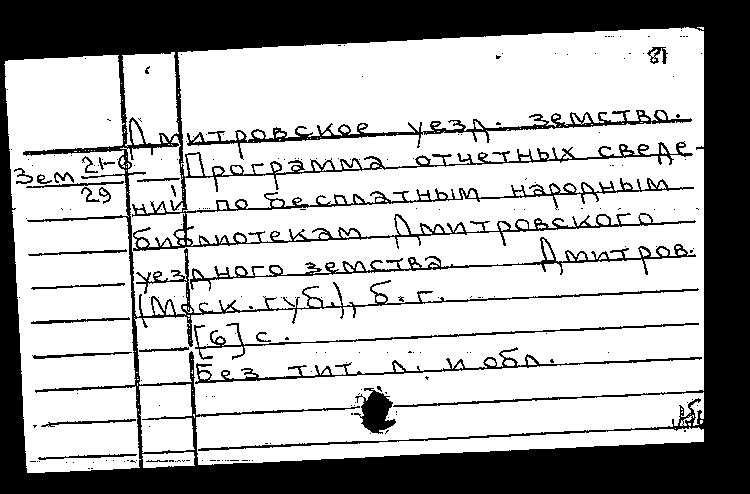 81
Дмитровское уезд. земство.
Зем 21-6/29
Программа отчетных сведе-
ний по бесплатным народным
библиотекам Дмитровского
уездного земства. Дмитров.
(Моск. губ.), б. г.
[6] с.
Без тит. л. и обл.